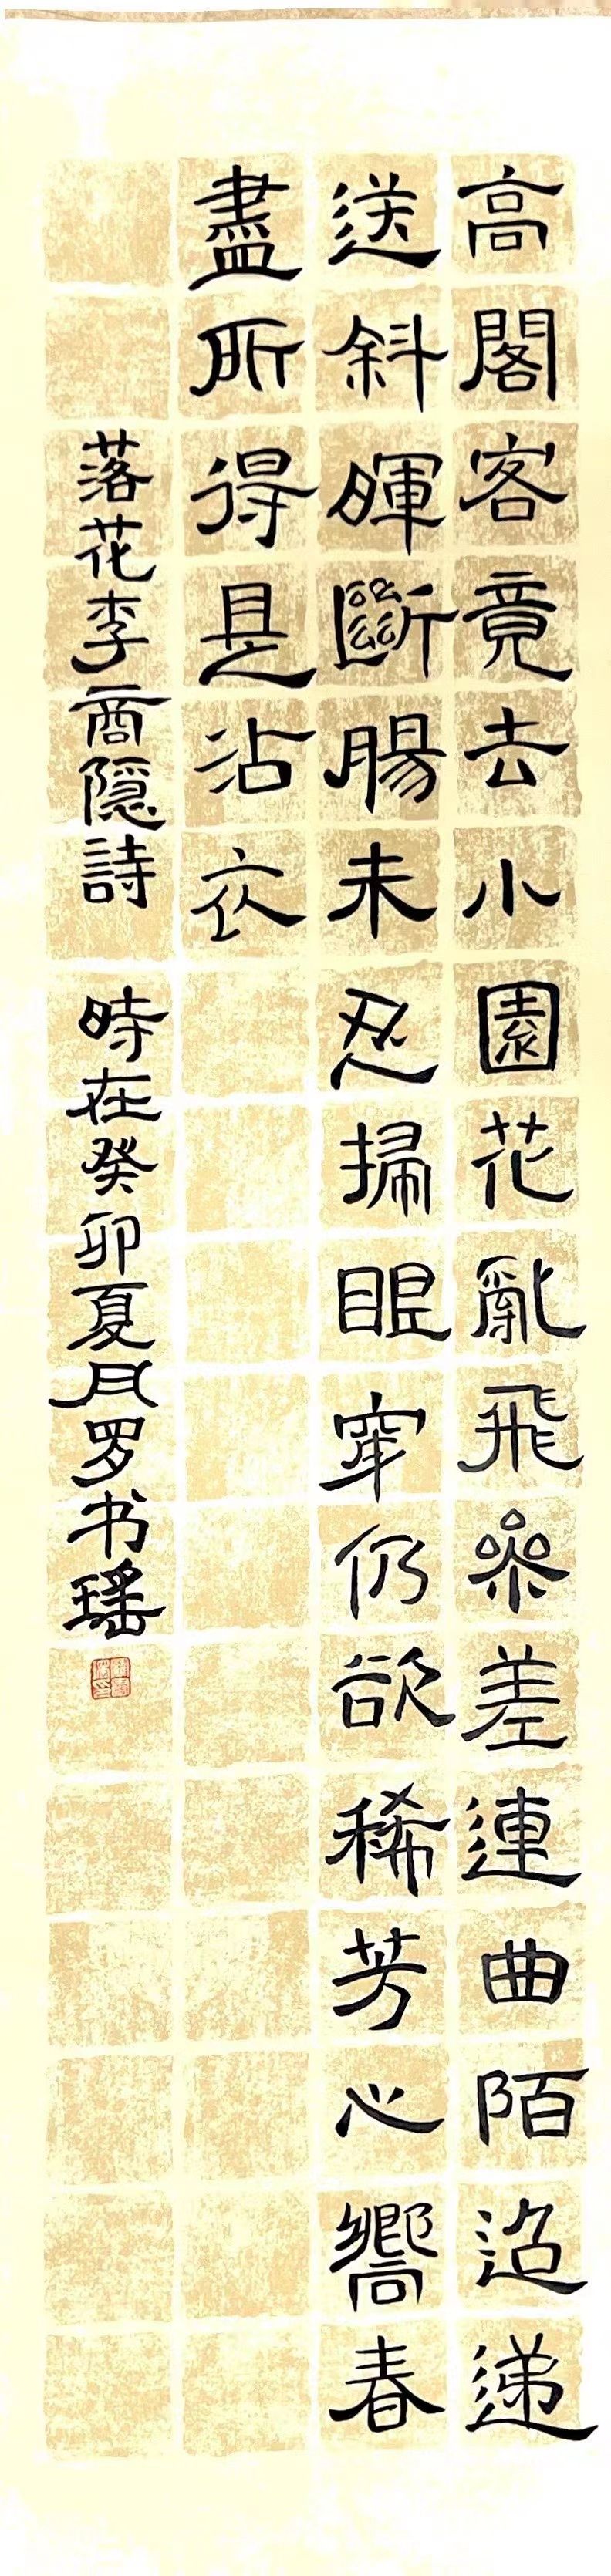 高閣客竟去小園花亂飛參差連曲陌迢递
送斜暉斷腸未忍掃眼穿仍欲稀芳心嚮春
盡所得是沾衣
落花李商隱詩 時在癸卯夏月罗书瑶